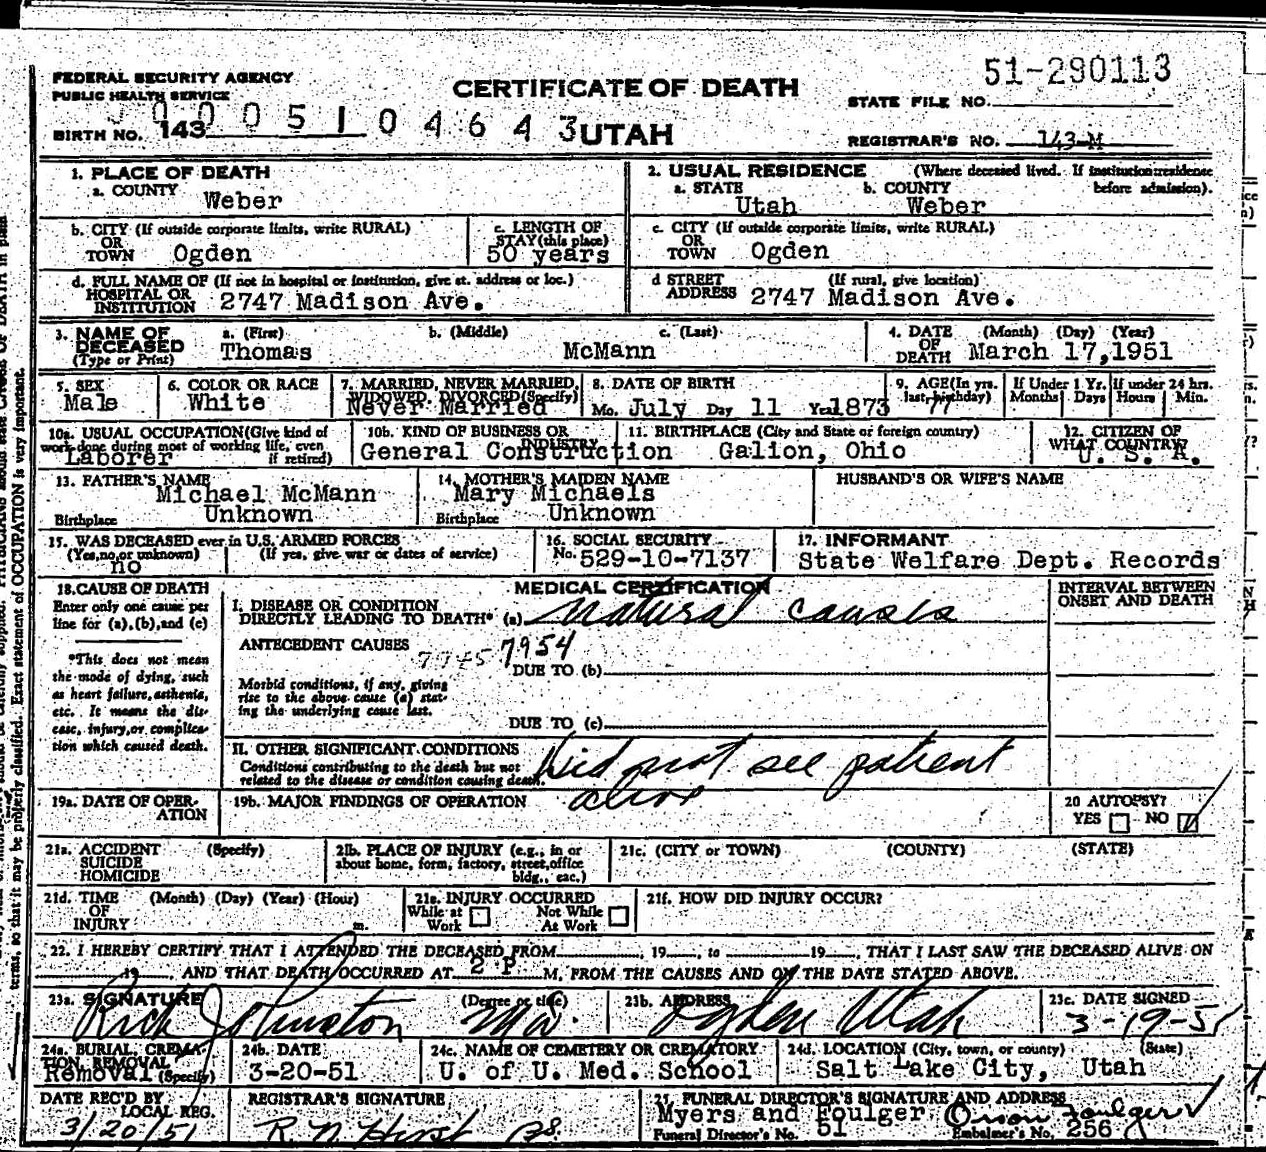 51-290113
FEDERAL SECURITY AGENCY
PUBLIC HEALTH SERVICE
CERTIFICATE OF DEATH
STATE FILE NO.
0 0 5 1 0 4 6 4 3
BIRTH NO. 143
UTAH
REGISTRAR'S NO. 143-M
1. PLACE OF DEATH
a. COUNTY
Weber
2. USUAL RESIDENCE (Where deceased lived. If institution: residence before admission).
a. STATE b. COUNTY
Utah Weber
b. CITY (If outside corporate limits, write RURAL)
OR
TOWN Ogden
c. LENGTH OF
STAY (this place)
50 years
c. CITY (If outside corporate limits, write RURAL)
OR
TOWN Ogden
d. FULL NAME OF (If not in hospital or institution, give st. address or loc.)
HOSPITAL OR
INSTITUTION 2747 Madison Ave.
d STREET (If rural, give location)
ADDRESS 2747 Madison Ave.
3. NAME OF DECEASED
(Type or Print)
a. (First) b. (Middle) c. (Last)
Thomas McMann
4. DATE OF DEATH (Month) (Day) (Year)
March 17,1951
5. SEX
Male
6. COLOR OR RACE
White
7. MARRIED, NEVER MARRIED,
WIDOWED, DIVORCED (Specify)
Never Married
8. DATE OF BIRTH
Mo. July Day 11 Year 1873
9. AGE (In yrs.
last birthday)
77
If Under 1 Yr.
Months Days
If under 24 hrs.
Hours Min.
10a. USUAL OCCUPATION (Give kind of
work done during most of working life, even
if retired)
Laborer
10b. KIND OF BUSINESS OR
INDUSTRY
General Construction
11. BIRTHPLACE (City and State or foreign country)
Galion, Ohio
12. CITIZEN OF
WHAT COUNTRY?
U. S. A.
13. FATHER'S NAME
Michael McMann
Birthplace Unknown
14. MOTHER'S MAIDEN NAME
Mary Michaels
Birthplace Unknown
HUSBAND'S OR WIFE'S NAME
15. WAS DECEASED ever in U.S. ARMED FORCES
(Yes, no, or unknown) (If yes, give war or dates of service)
no
16. SOCIAL SECURITY
No. 529-10-7137
17. INFORMANT
State Welfare Dept. Records
18. CAUSE OF DEATH
Enter only one cause per
line for (a), (b), and (c)
*This does not mean
the mode of dying, such
as heart failure, asthenia,
etc. It means the dis-
ease, injury, or complica-
tion which caused death.
MEDICAL CERTIFICATION
INTERVAL BETWEEN
ONSET AND DEATH
I. DISEASE OR CONDITION
DIRECTLY LEADING TO DEATH* (a) natural causes
ANTECEDENT CAUSES
7954
DUE TO (b)
Morbid conditions, if any, giving
rise to the above cause (a) stat-
ing the underlying cause last.
DUE TO (c)
II. OTHER SIGNIFICANT CONDITIONS
Conditions contributing to the death but not
related to the disease or condition causing death.
Did not see patient
alive
19a. DATE OF OPER-
ATION
19b. MAJOR FINDINGS OF OPERATION
20 AUTOPSY?
YES NO
21a. ACCIDENT (Specify)
SUICIDE
HOMICIDE
21b. PLACE OF INJURY (e.g., in or
about home, form, factory, street, office
bldg., eac.)
21c. (CITY or TOWN) (COUNTY) (STATE)
21d. TIME (Month) (Day) (Year) (Hour)
OF
INJURY m.
21e. INJURY OCCURRED
While at Work Not While At Work
21f. HOW DID INJURY OCCUR?
22. I HEREBY CERTIFY THAT I ATTENDED THE DECEASED FROM 19 , to 19 , THAT I LAST SAW THE DECEASED ALIVE ON
19 , AND THAT DEATH OCCURRED AT 2 P M, FROM THE CAUSES AND ON THE DATE STATED ABOVE.
23a. SIGNATURE (Degree or title)
Rick Johnston M.D.
23b. ADDRESS
Ogden Utah
23c. DATE SIGNED
3-19-51
24a. BURIAL, CREMA-
TION, REMOVAL
Removal (Specify)
24b. DATE
3-20-51
24c. NAME OF CEMETERY OR CREMATORY
U. of U. Med. School
24d. LOCATION (City, town, or county) (State)
Salt Lake City, Utah
DATE REC'D BY
LOCAL REG.
3/20/51
REGISTRAR'S SIGNATURE
R N Hirst
25. FUNERAL DIRECTOR'S SIGNATURE AND ADDRESS
Myers and Foulger Orson Foulger
Funeral Director's No. 51 Embalmer's No. 256